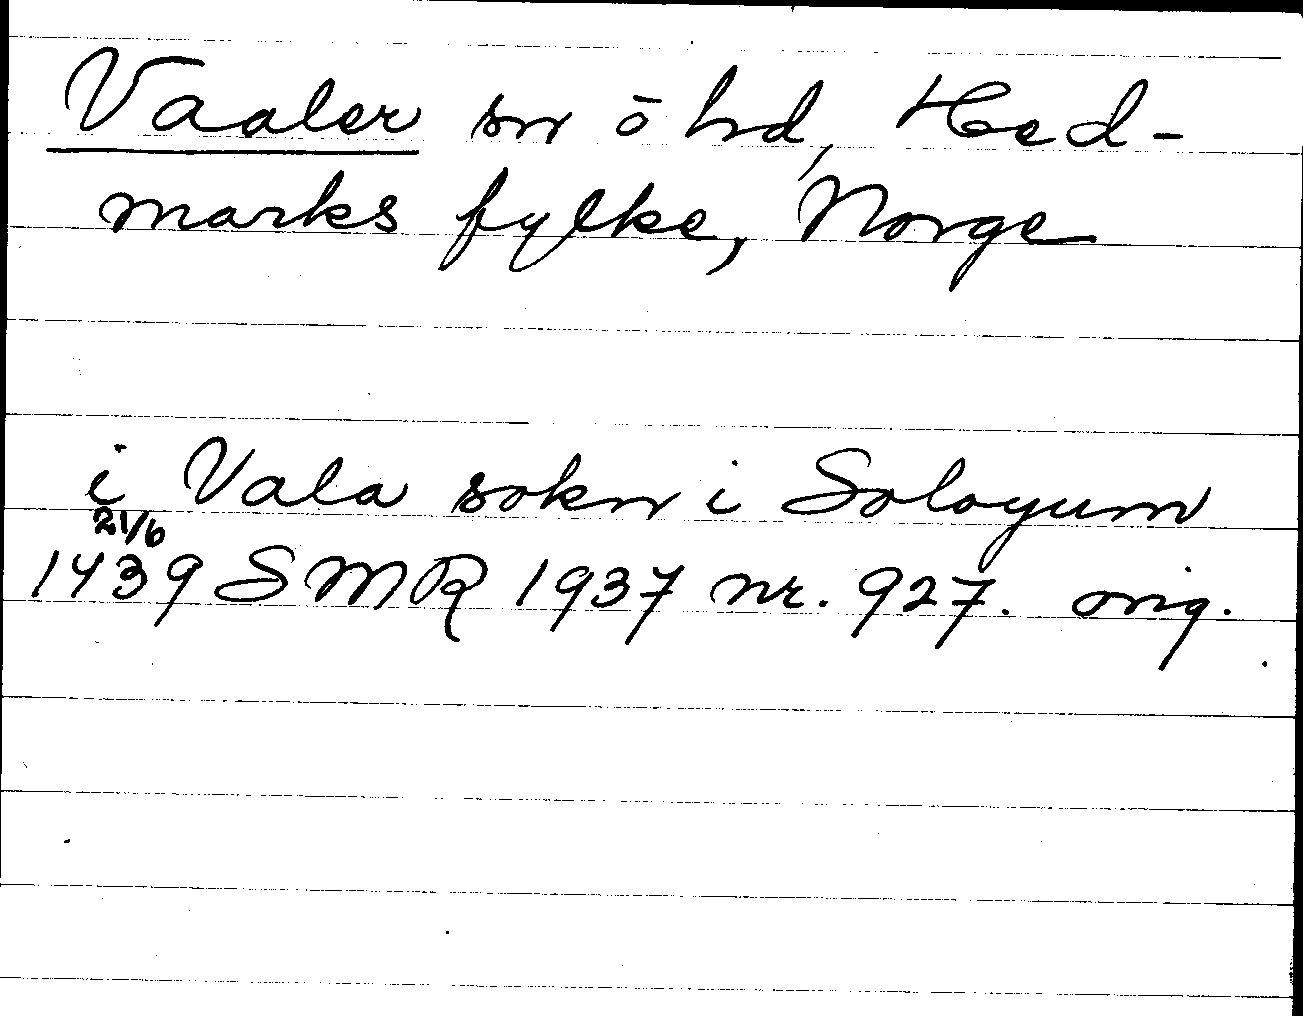 Vaaler sn ō hd, Hed-
marks fylke, Norge
i Vala sokn i Soloyum
21/6
1439 SMR 1937 nr. 927. orig.